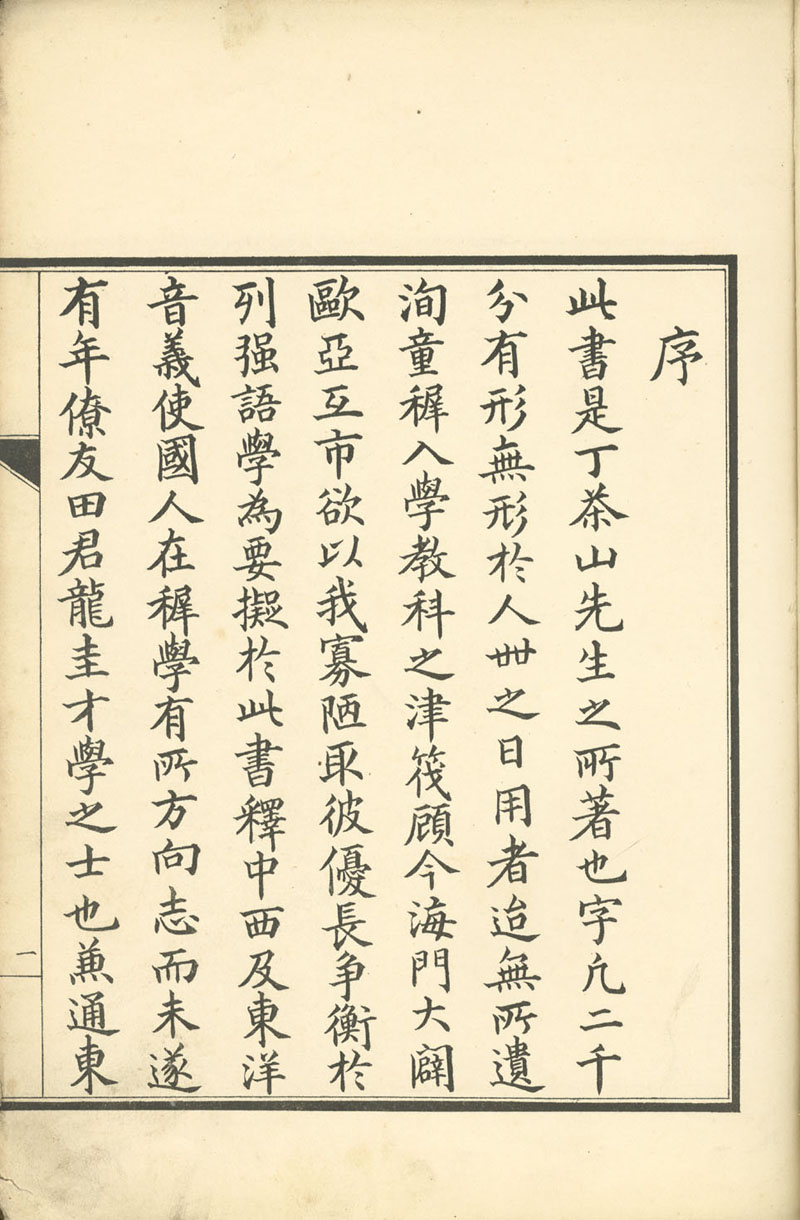 序
此書是丁茶山先生之所著也字凡二千
分有形無形於人丗之日用者迨無所遺
洵童穉入學教科之津筏顧今海門大闢
歐亞互市欲以我寡陋取彼優長爭衡於
列强語學為要擬於此書釋中西及東洋
音義使國人在穉學有所方向志而未遂
有年僚友田君龍圭才學之士也兼通東
一